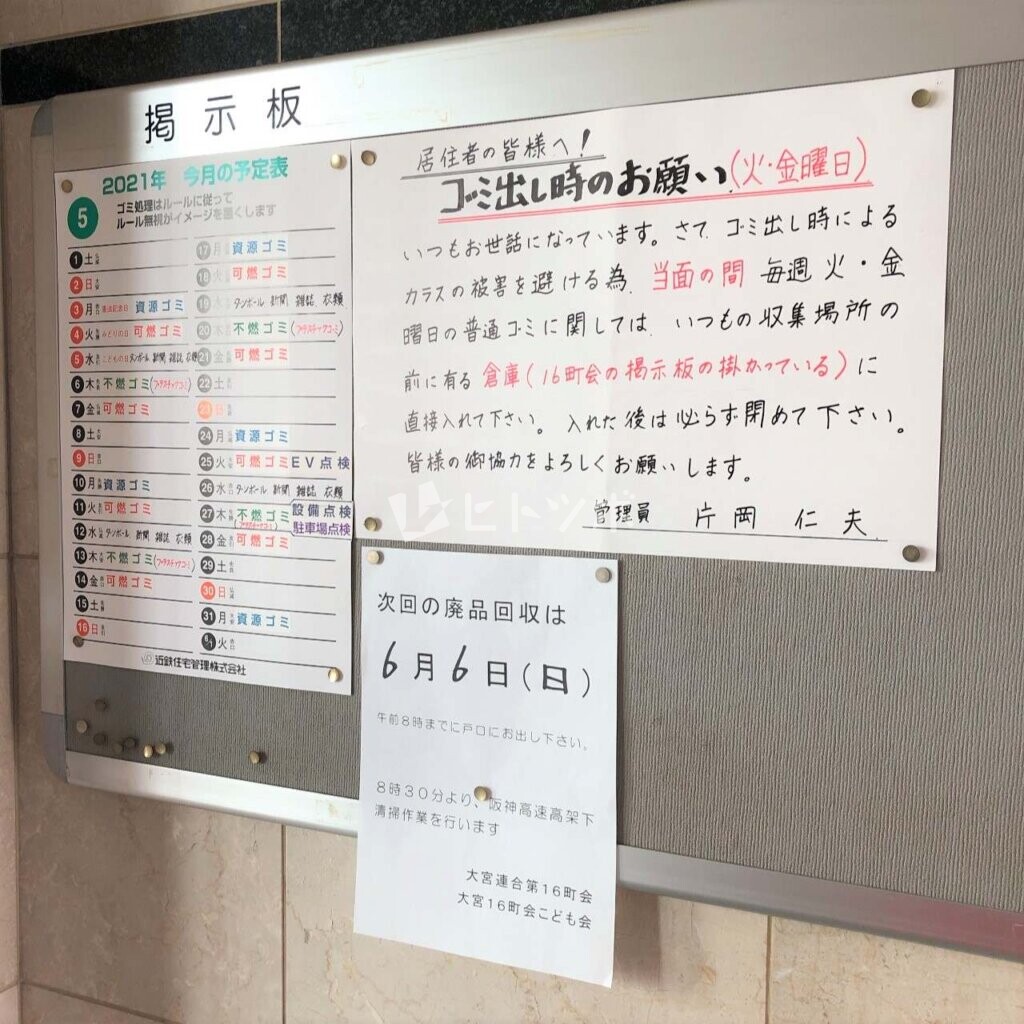 掲示板
2021年 今月の予定表
5
ゴミ処理はルールに従って
ルール無視がイメージを悪くします
1 土
2 日
3 月 憲法記念日 資源ゴミ
4 火 みどりの日 可燃ゴミ
5 水 こどもの日 ダンボール 新聞 雑誌 衣類
6 木 不燃ゴミ(プラスチックゴミ)
7 金 可燃ゴミ
8 土
9 日
10 月 資源ゴミ
11 火 可燃ゴミ
12 水 ダンボール 新聞 雑誌 衣類
13 木 不燃ゴミ(プラスチックゴミ)
14 金 可燃ゴミ
15 土
16 日
17 月 資源ゴミ
18 火 可燃ゴミ
19 水 ダンボール 新聞 雑誌 衣類
20 木 不燃ゴミ(プラスチックゴミ)
21 金 可燃ゴミ
22 土
23 日
24 月 資源ゴミ
25 火 可燃ゴミ EV点検
26 水 ダンボール 新聞 雑誌 衣類
27 木 不燃ゴミ 設備点検
(プラスチックゴミ) 駐車場点検
28 金 可燃ゴミ
29 土
30 日
31 月 資源ゴミ
6/1 火
近鉄住宅管理株式会社
居住者の皆様へ!
ゴミ出し時のお願い(火・金曜日)
いつもお世話になっています。さて、ゴミ出し時による
カラスの被害を避ける為、当面の間 毎週 火・金
曜日の普通ゴミに関しては、いつもの収集場所の
前に有る 倉庫(16町会の掲示板の掛かっている)に
直接入れて下さい。入れた後は必らず閉めて下さい。
皆様の御協力をよろしくお願いします。
管理員 片岡 仁夫
次回の廃品回収は
6月6日(日)
午前8時までに戸口にお出し下さい。
8時30分より、阪神高速高架下
清掃作業を行います
大宮連合第16町会
大宮16町会こども会